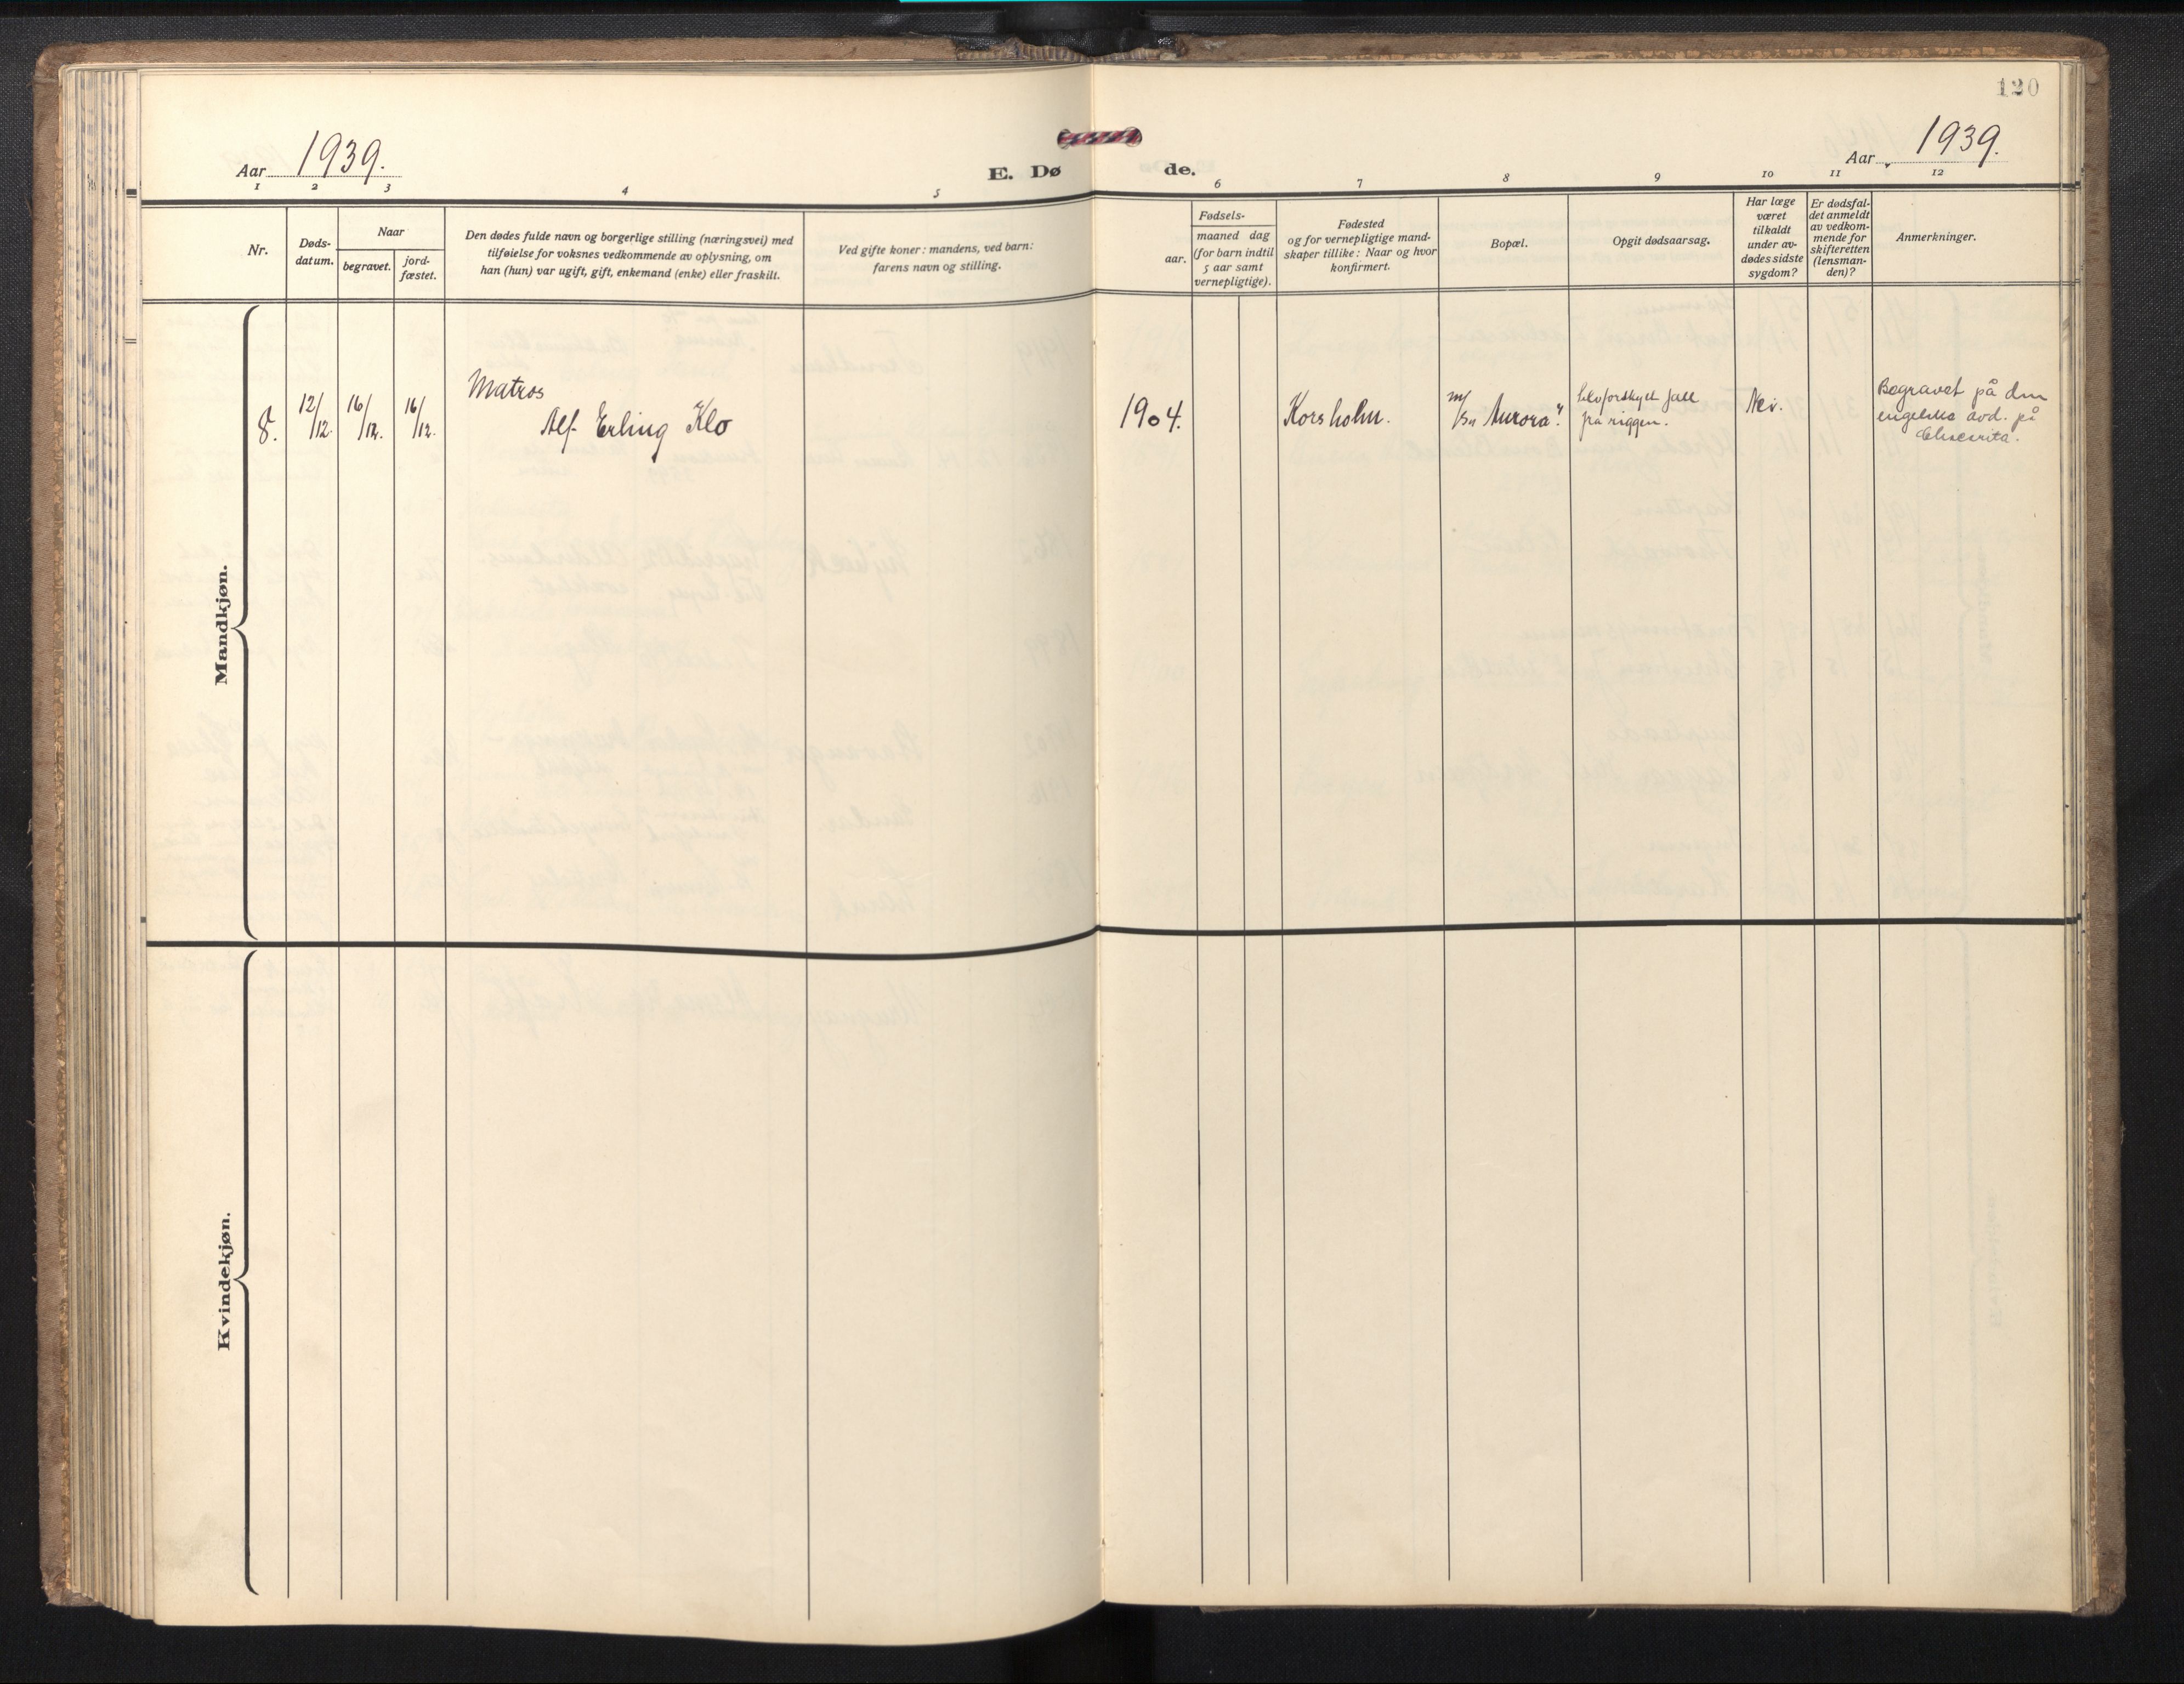 120
Aar 1939.
E. Dø de.
Aar 1939.
1 2 3 4 5 6 7 8 9 10 11 12
Nr.
Døds-
datum.
Naar
begravet.
jord-
fæstet.
Den dødes fulde navn og borgerlige stilling (næringsvei) med
tilføielse for voksnes vedkommende av oplysning, om
han (hun) var ugift, gift, enkemand (enke) eller fraskilt.
Ved gifte koner: mandens, ved barn:
farens navn og stilling.
Fødsels-
aar.
maaned dag
(for barn indtil
5 aar samt
vernepligtige).
Fødested
og for vernepligtige mand-
skaper tillike: Naar og hvor
konfirmert.
Bopæl.
Opgit dødsaarsag.
Har læge
været
tilkaldt
under av-
dødes sidste
sygdom?
Er dødsfal-
det anmeldt
av vedkom-
mende for
skifteretten
(lensman-
den)?
Anmerkninger.
Mandkjøn.
8.
12/12.
16/12.
16/12.
Matros
Alf Erling Klo
1904.
Korsholm.
"Aurora".
Selvforskylt fall
fra riggen.
Nei.
Begravet på den
engelske avd. på
Kvindekjøn.